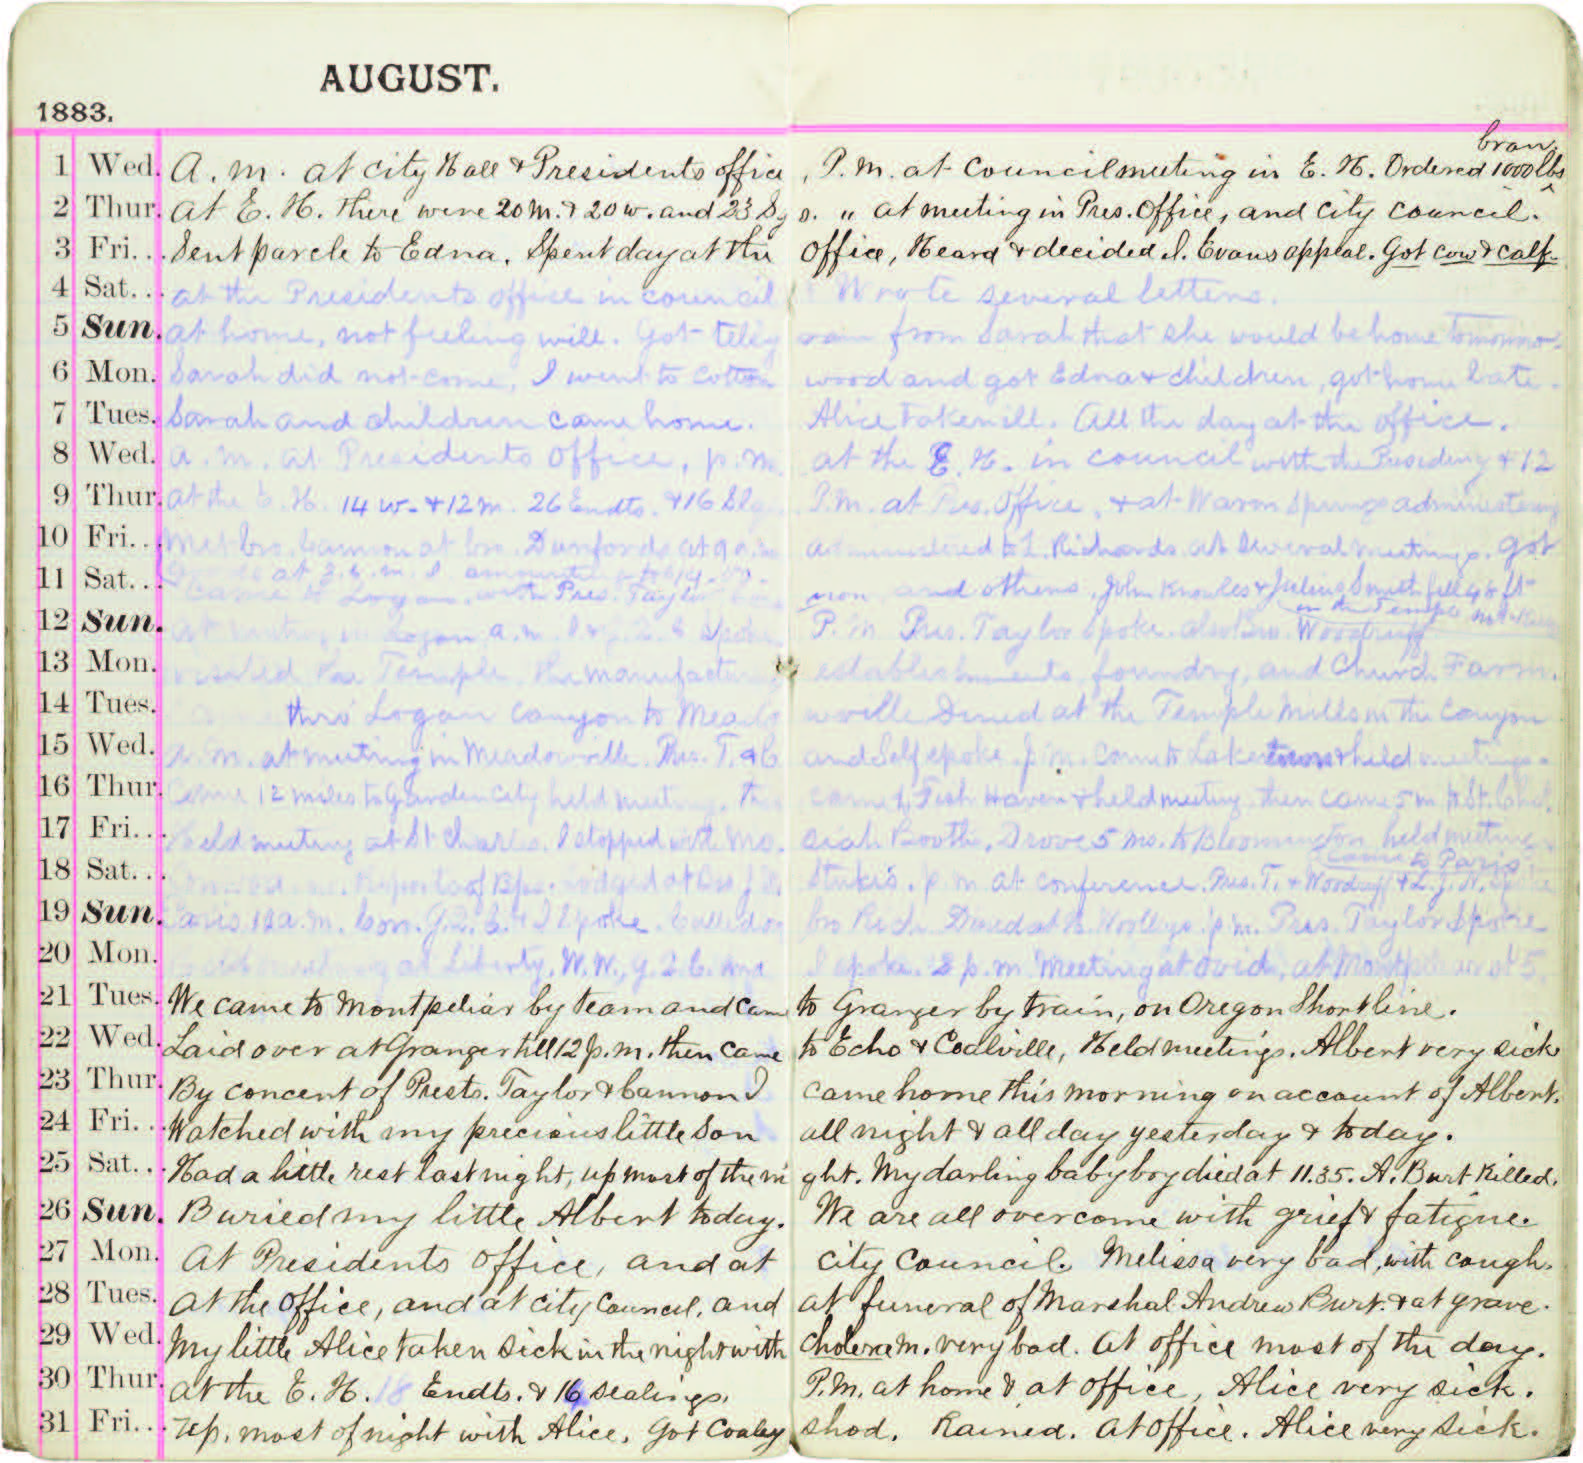 AUGUST.
1883.
bran
1 Wed. A. m. at City Hall & Presidents office, P. M. at Council meeting in E. H. Ordered 1000 lbs
2 Thur. at E. H. there were 20 m. & 20 w. and 23 Sgs. " at meeting in Pres. Office, and City Council.
3 Fri... Sent parcle to Edna. Spent day at the Office, Heard & decided I. Evans appeal. Got cow & calf.
4 Sat... at the Presidents office in council Wrote several letters.
5 Sun. at home, not feeling well. Got telegram from Sarah that she would be home tomorrow.
6 Mon. Sarah did not come, I went to Cottonwood and got Edna & children, got home late.
7 Tues. Sarah and children came home. Alice taken ill. All the day at the office.
8 Wed. a. m. at Presidents Office, p. m. at the E. H. in council with the Presidency & 12
9 Thur. at the E. H. 14 w. & 12 m. 26 Endts. & 16 Slgs. P. M. at Pres. Office, & at Warm Springs administering
10 Fri... Met bro. Cannon at bro. Dunfords at 9 a. m. administered to L. Richards. at several meetings. Got
11 Sat... at 3. Came to Logan with Pres. Taylor and others. John Knowles & Julius Smith fell 98 ft
in the Temple
12 Sun. at meeting in Logan a. m. I & spoke, P. M. Pres. Taylor spoke. also Bro. Woodruff
13 Mon. visited the Temple, the manufacturing establishments, foundry, and Church Farm.
14 Tues. thro' Logan Canyon to Meadowville Dined at the Temple Mills in the Canyon
15 Wed. a. m. at meeting in Meadowville. Pres. T. & C. and Self spoke. p. m. Come to Laketown & held meeting.
16 Thur. Came 12 miles to Garden City held meeting. then came to Fish Haven & held meeting. then came 5 m to St. Chas.
17 Fri... Held meeting at St Charles. I stopped with Mo. siah Booth. Drove 5 ms. to Bloomington held meeting
Came to Paris
18 Sat... Reports of Bps. lodged at Bro J. Stuki's. p. m. at conference. Pres. T. & Woodruff & L. J. N. spoke
19 Sun. Paris a. m. Con. G. Q. C. & I spoke. Called on bro Rich. Dined at Woolleys p. m. Pres. Taylor Spoke
20 Mon. meeting at Liberty, W. W., G. Q. C. and I spoke. 2 p. m. Meeting at Ovid, at Montpeliar at 5
21 Tues. We came to Montpeliar by team and came to Granger by train, on Oregon Shortline.
22 Wed. Laid over at Granger till 12 p. m. then came to Echo & Coalville, Held meetings. Albert very sick
23 Thur. By concent of Prests. Taylor & Cannon I came home this morning on account of Albert.
24 Fri... Watched with my precious little Son all night & all day yesterday & today.
25 Sat... Had a little rest last night, up most of the night. My darling baby boy died at 11.35. A. Burt Killed.
26 Sun. Buried my little Albert today. We are all overcome with grief & fatigue.
27 Mon. At Presidents office, and at City Council. Melissa very bad, with cough.
28 Tues. at the office, and at City Council, and at funeral of Marshal Andrew Burt. & at grave.
29 Wed. My little Alice taken sick in the night with cholera m. very bad. At office most of the day.
30 Thur. at the E. H. 18 Endts. & 16 sealings. P. M. at home & at office, Alice very sick.
31 Fri... up. most of night with Alice. Got Coaley shod. Rained. At Office. Alice very sick.